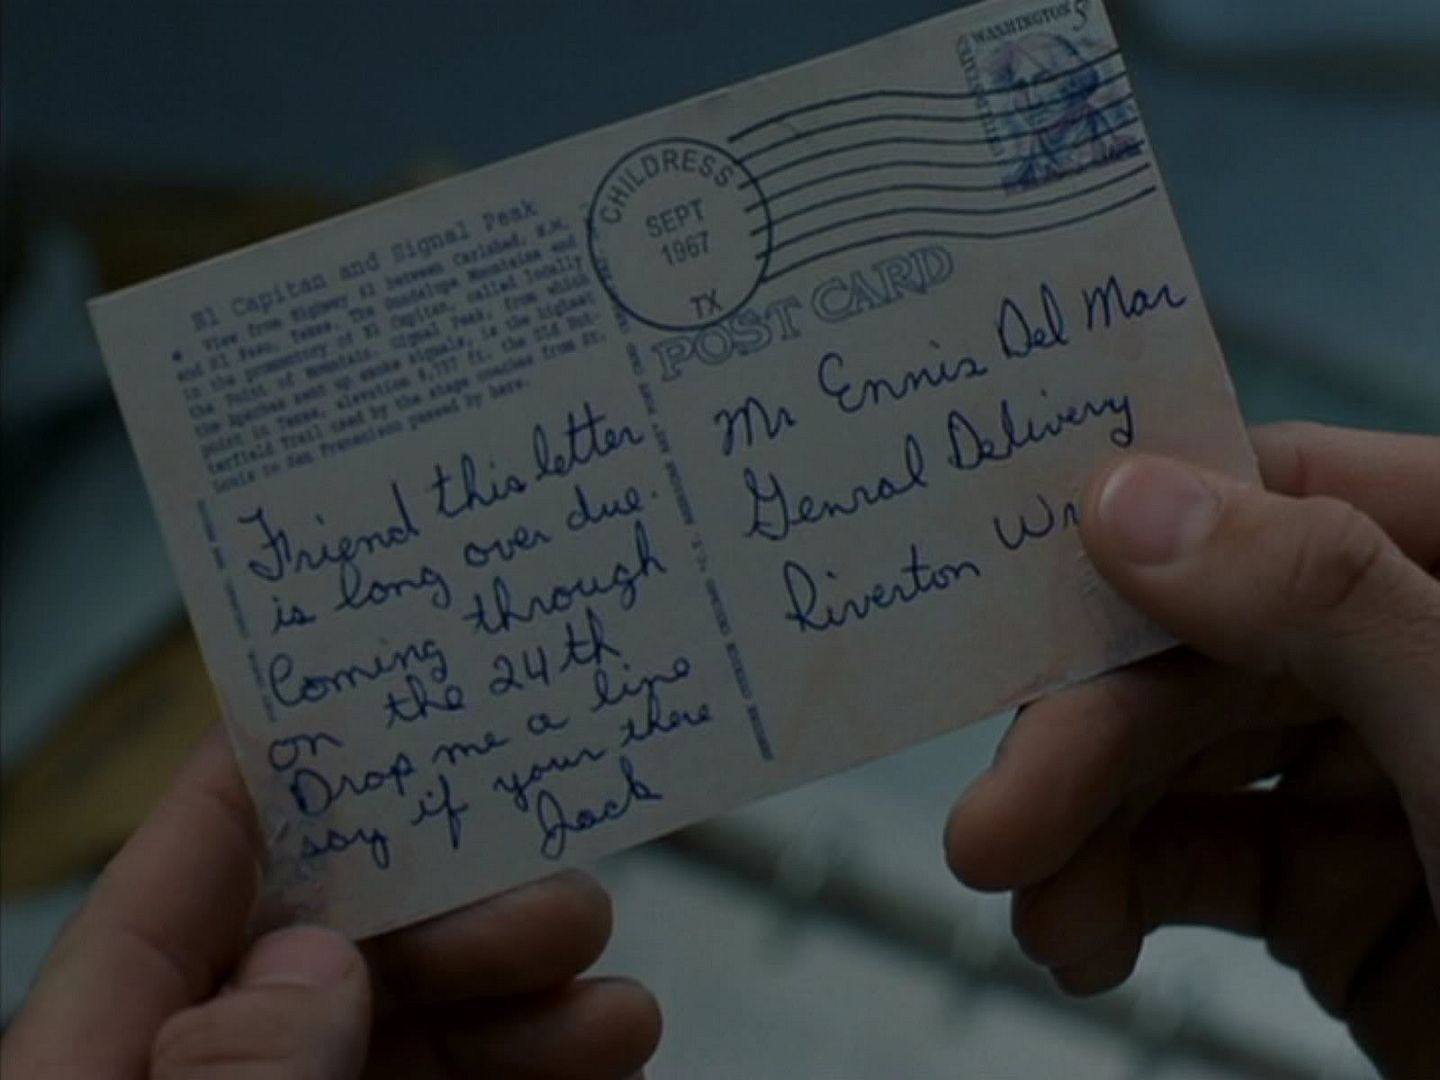 El Capitan and Signal Peak
View from Highway 62 between Carlsbad, N.M.
and El Paso, Texas. The Guadalupe Mountains and
in the promontory of El Capitan, called locally
the Point of Mountain. Signal Peak, from which
the Apaches sent up smoke signals, is the highest
point in Texas, elevation 8,757 ft. the Old But-
terfield Trail used by the stage coaches from St.
Louis to San Francisco passed by here.
Friend this letter
is long over due.
Coming through
on the 24th
Drop me a line
say if your there
Jack
CHILDRESS
SEPT
1967
TX
WASHINGTON 5
POST CARD
Mr Ennis Del Mar
Genral Delivery
Riverton